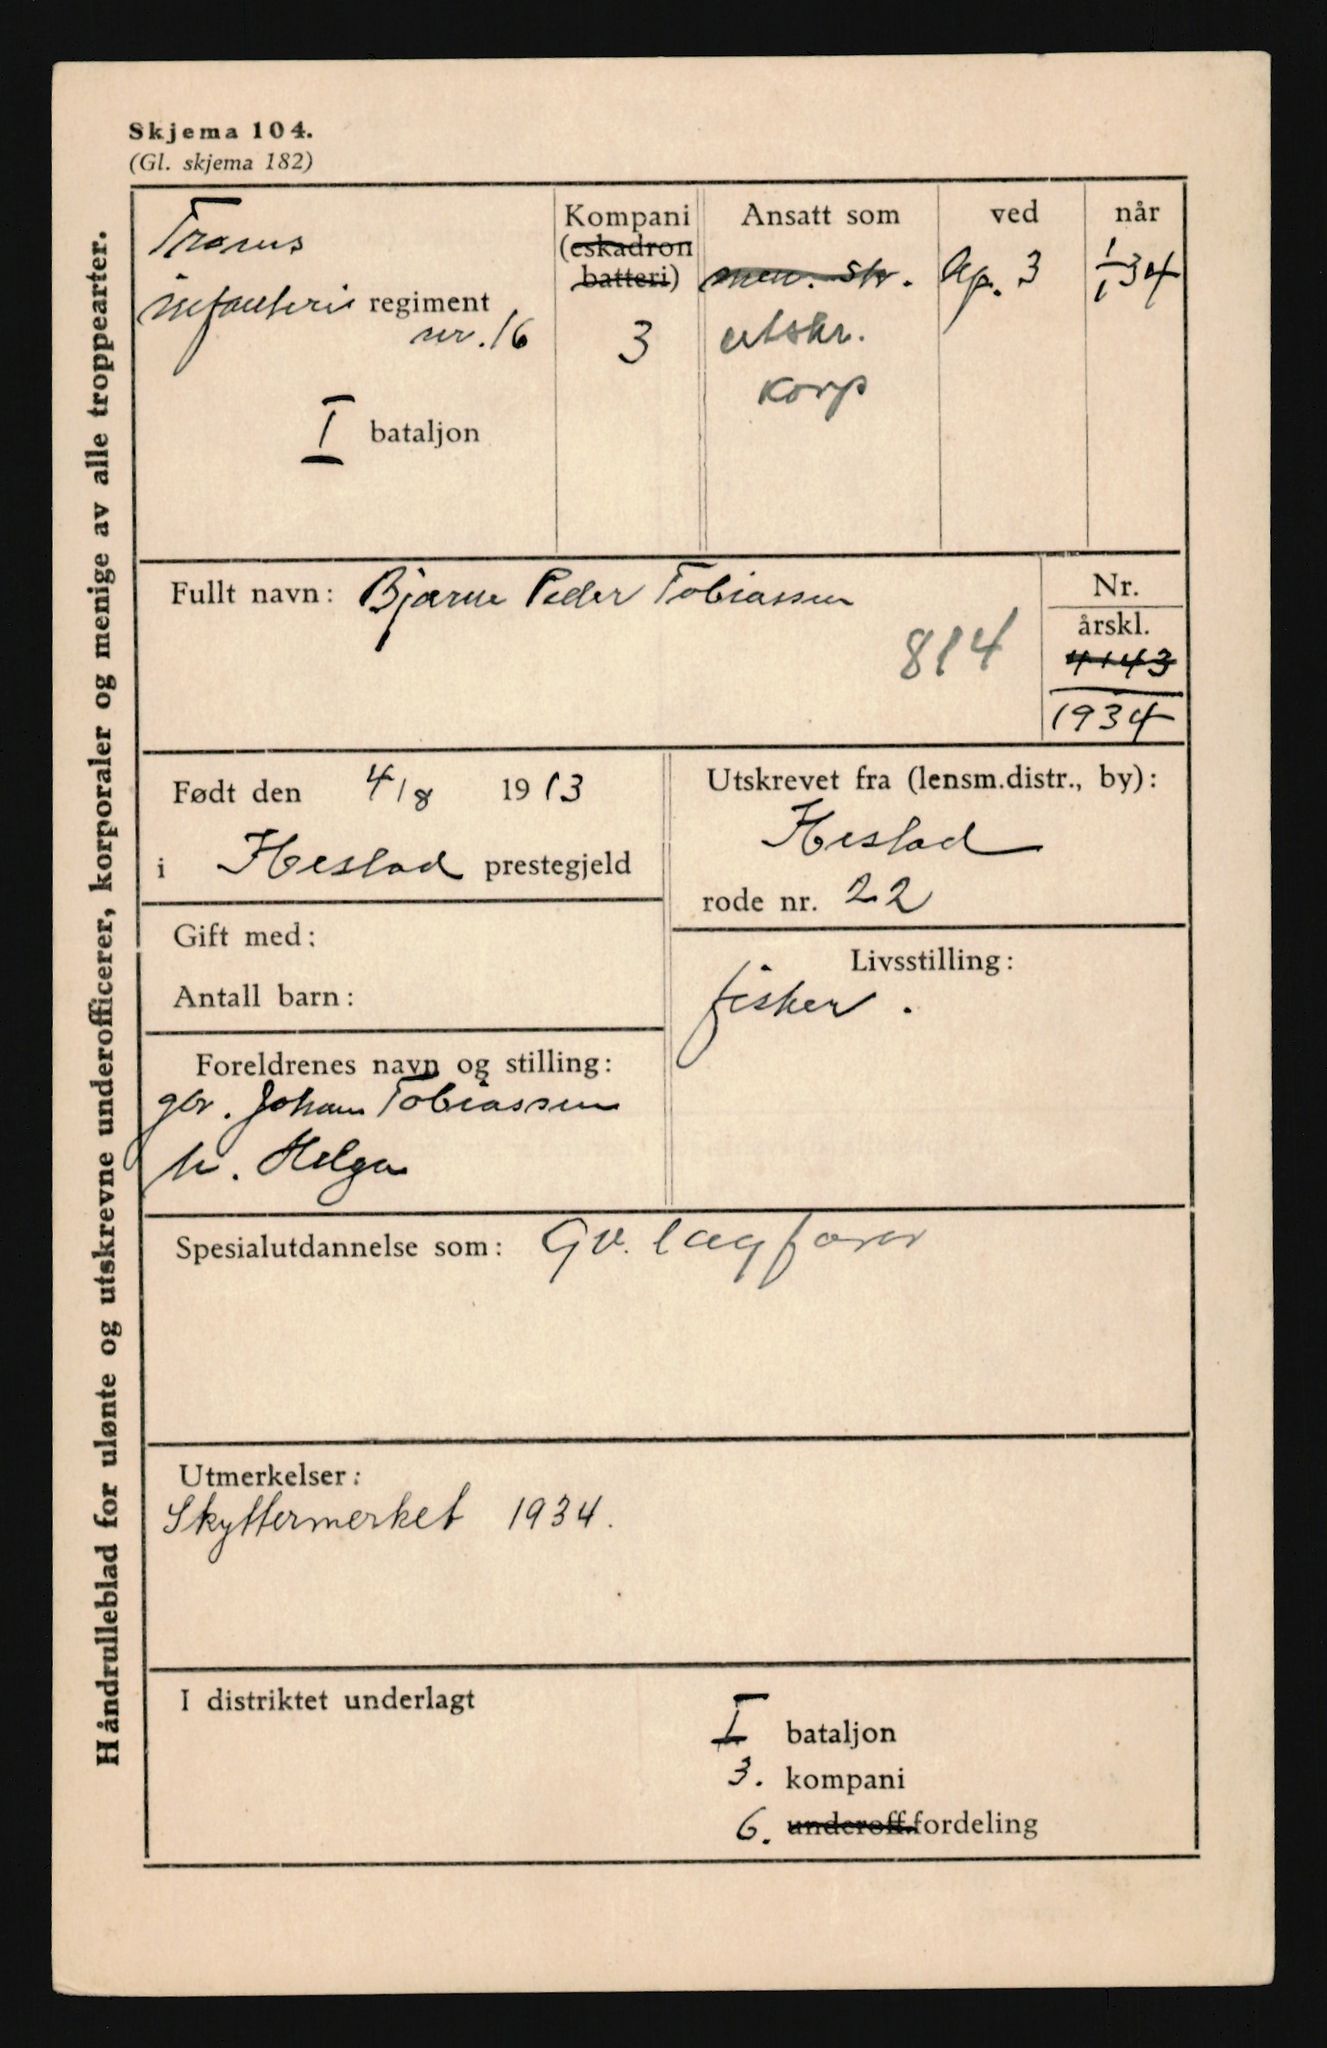 Skjema 104.
(Gl. skjema 182)
Håndrulleblad for ulønte og utskrevne underofficerer, korporaler og menige av alle troppearter.
Troms
infanteri regiment
nr. 16
I bataljon
Kompani
(eskadron
batteri)
3
Ansatt som
men. str.
utskr.
Korp
ved
Kp. 3
når
1/1 34
Fullt navn: Bjarne Peder Tobiassen
814
Nr.
årskl.
4143
1934
Født den 4/8 1913
i Hestad prestegjeld
Utskrevet fra (lensm.distr., by):
Hestad
rode nr. 22
Gift med:
Antall barn:
Livsstilling:
fisker.
Foreldrenes navn og stilling:
gbr. Johan Tobiassen
h. Helga
Spesialutdannelse som: Gv. lagfører
Utmerkelser:
Skyttermerket 1934.
I distriktet underlagt
I bataljon
3. kompani
6. underoff.fordeling